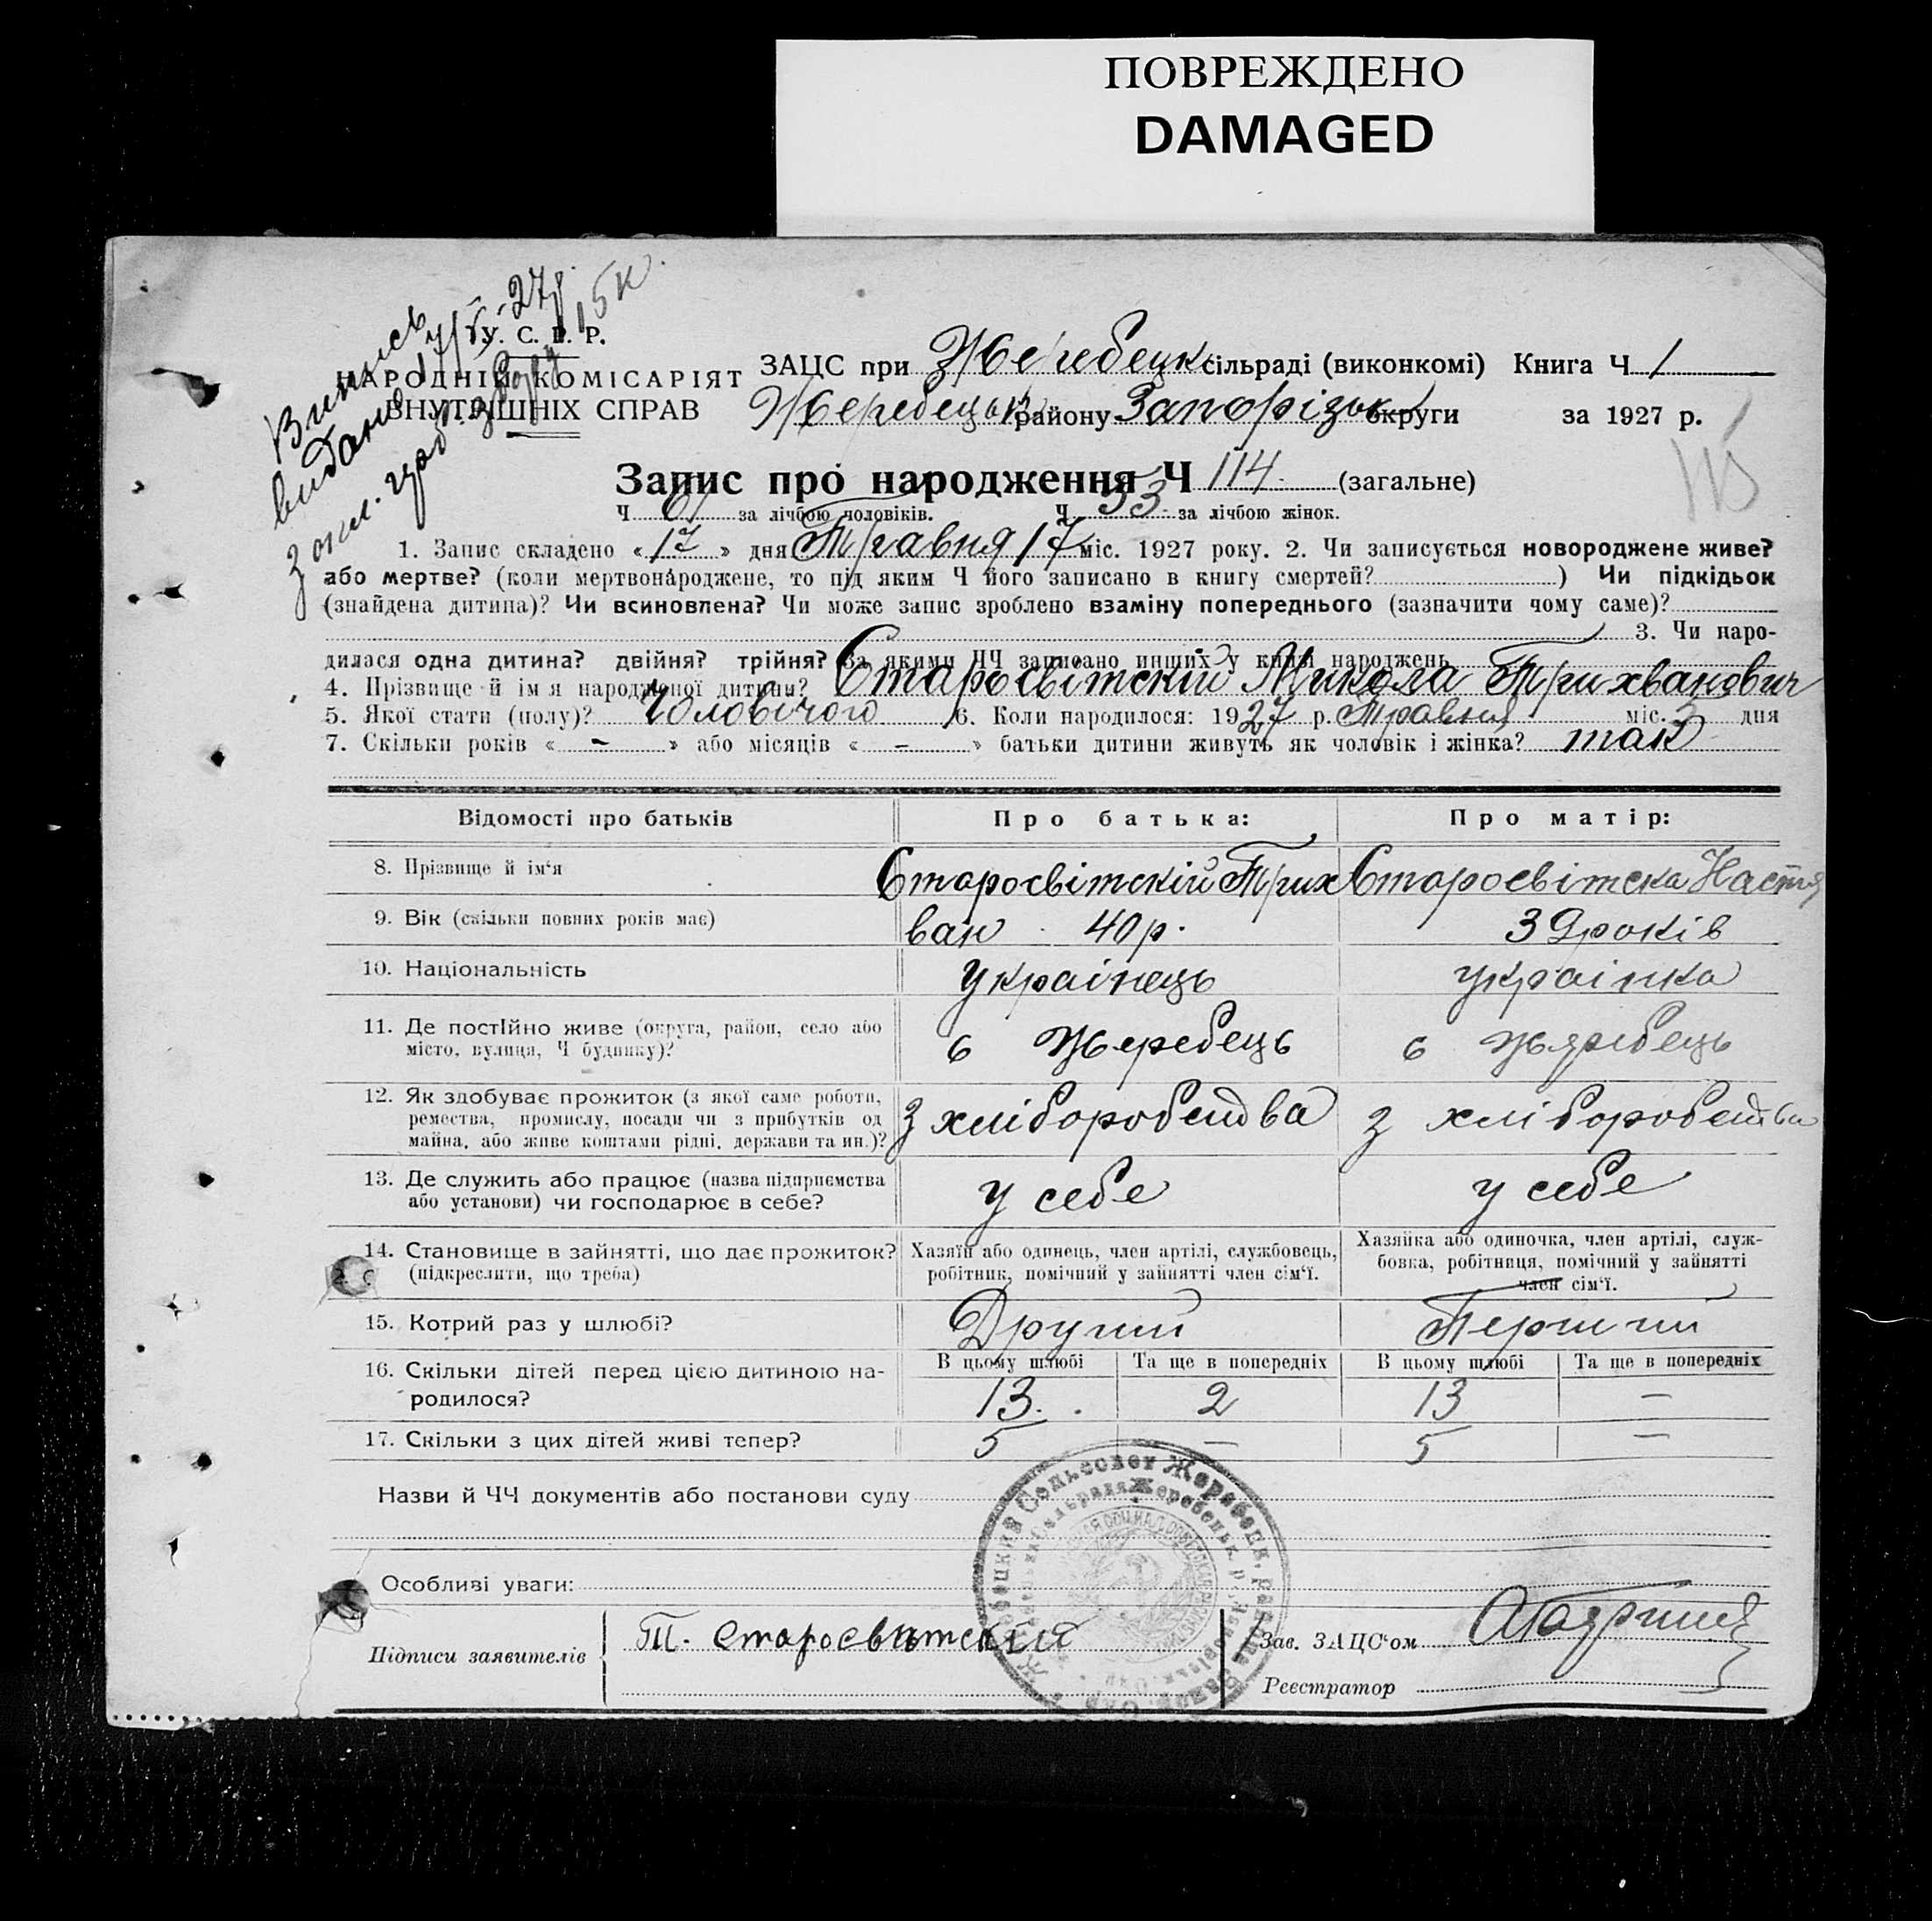 ПОВРЕЖДЕНО
DAMAGED
Випись
видано 17/V-27р.
15к.
У. С. Р. Р.
НАРОДНІЙ КОМІСАРІЯТ
ВНУТРІШНІХ СПРАВ
ЗАЦС при Жеребецк сільраді (виконкомі) Книга Ч 1
Жеребецьк району Запорізьк округи за 1927 р.
Запис про народження Ч 114 (загальне)
Ч 61 за лічбою чоловіків. Ч 53 за лічбою жінок.
1. Запис складено « 17 » дня Травня 17 міс. 1927 року. 2. Чи записується новороджене живе?
або мертве? (коли мертвонароджене, то під яким Ч його записано в книгу смертей? ) Чи підкідьок
(знайдена дитина)? Чи всиновлена? Чи може запис зроблено взаміну попереднього (зазначити чому саме)?
3. Чи наро-
дилася одна дитина? двійня? трійня? За якими ЧЧ записано инших у книзі народжень
4. Прізвище й імя народженої дитини? Старосвітскій Микола Трихванович
5. Якої стати (полу)? Чоловічого 6. Коли народилося: 1927 р. Травня міс. 3 дня
7. Скільки років « - » або місяців « - » батьки дитини живуть як чоловік і жінка? так
Відомості про батьків Про батька: Про матір:
8. Прізвище й ім'я Старосвітскій Трих Старосвітска Настя
9. Вік (скільки повних років має) ван 40р. 39років
10. Національність Украінець украінка
11. Де постІйно живе (округа, район, село або с Жеребець с Жеребець
місто, вулиця, Ч будинку)?
12. Як здобуває прожиток (з якої саме роботи, з хліборобства з хліборобства
ремества, промислу, посади чи з прибутків од
майна, або живе коштами рідні, держави та ин.)?
13. Де служить або працює (назва підприємства у себе у себе
або установи) чи господарює в себе?
14. Становище в зайнятті, що дає прожиток? Хазяїн або одинець, член артілі, службовець, Хазяйка або одиночка, член артілі, служ-
(підкреслити, що треба) робітник, помічний у зайнятті член сім'ї. бовка, робітниця, помічний у зайнятті
член сім'ї.
15. Котрий раз у шлюбі? Другий Перший
16. Скільки дітей перед цією дитиною на- В цьому шлюбі Та ще в попередніх В цьому шлюбі Та ще в попередніх
родилося? 13. 2 13 —
17. Скільки з цих дітей живі тепер? 5 — 5 —
Назви й ЧЧ документів або постанови суду
Особливі уваги:
Підписи заявителів Т. Старосвитский Зав. ЗАЦС'ом
Реєстратор